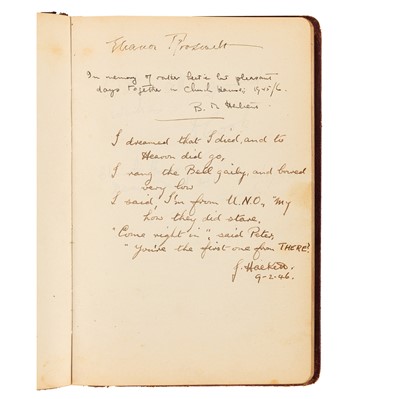 Eleanor Roosevelt
In memory of
days together in Church House 1945/6.
B.
I dreamed that I died, and to
Heaven did go,
I rang the Bell gaily, and bowed
very low
I said, I'm from U.N.O., "My
how they did stare,
"Come right in", said Peter,
"You're the first one from THERE"
J. Hackett.
9-2-46.